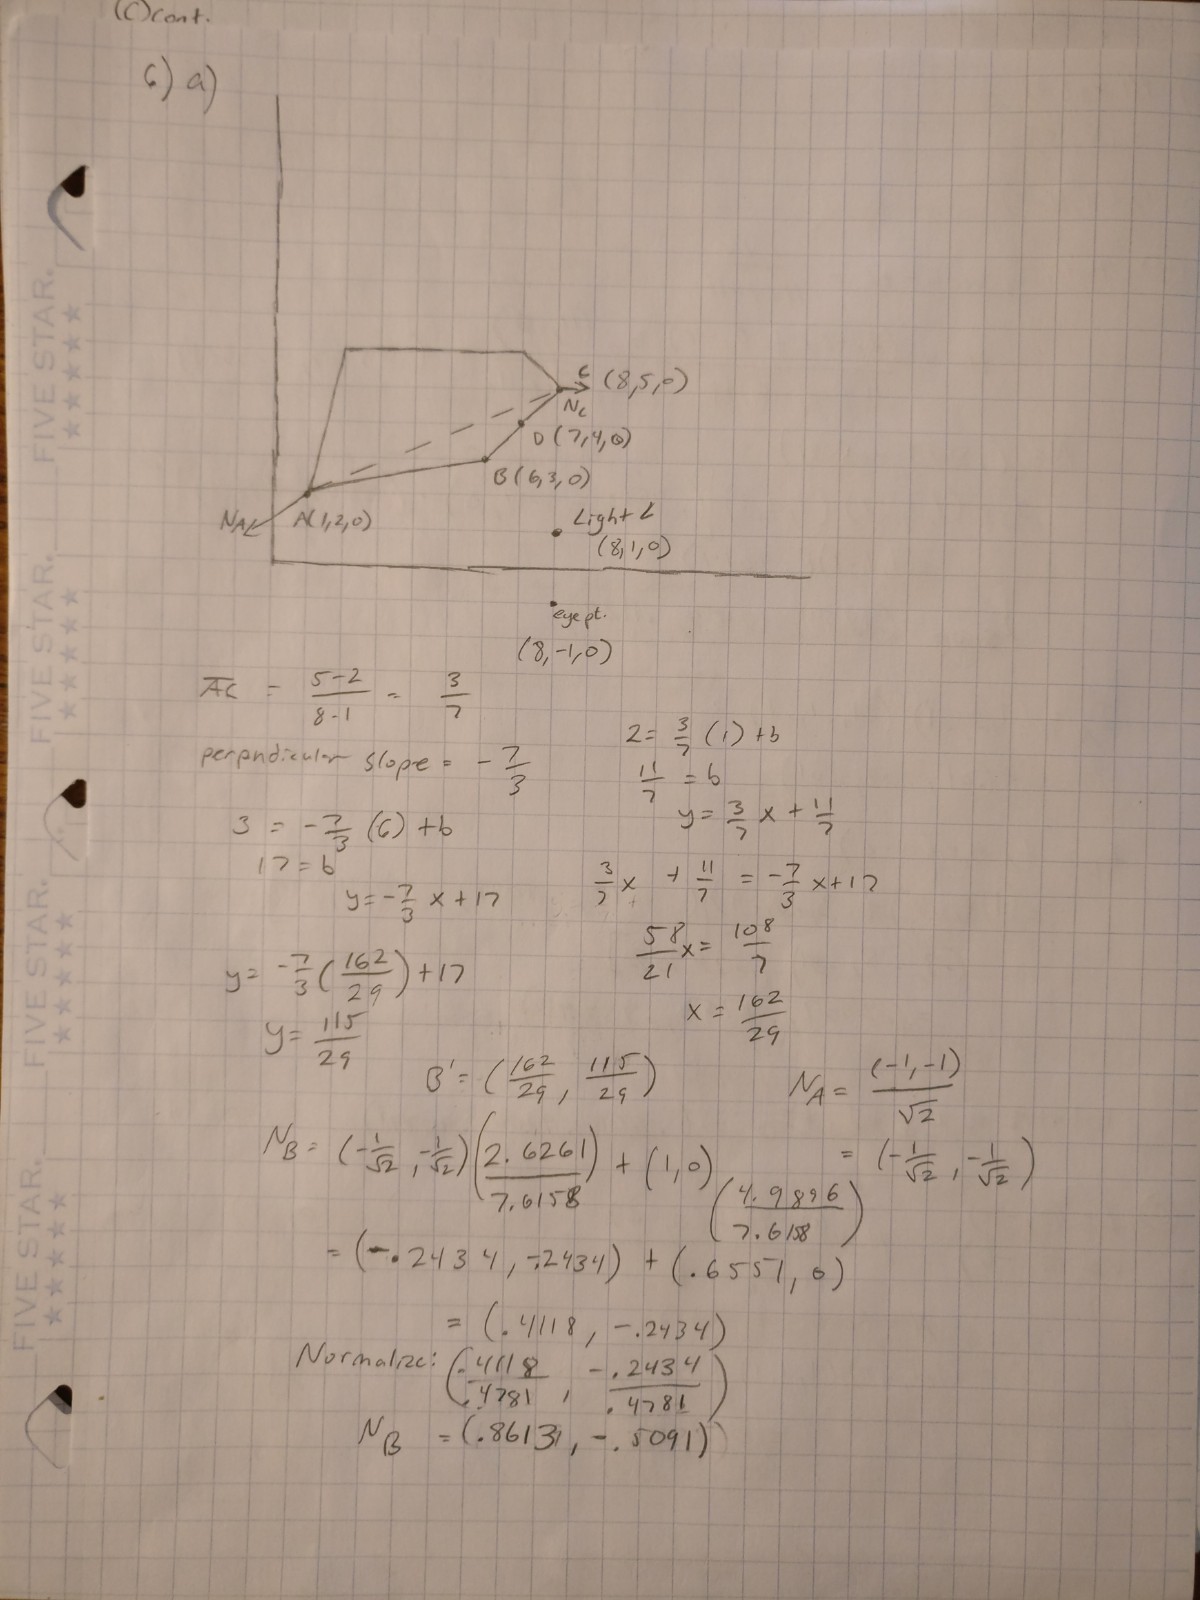 (C)cont.
6) a)
C (8,5,0)
NC
D(7,4,0)
B(6,3,0)
NA A(1,2,0)
Light L
(8,1,0)
eye pt.
(8,-1,0)
AC = 5-2/8-1 = 3/7
perpndicular slope = -7/3
2 = 3/7 (1) + b
11/7 = b
y = 3/7 x + 11/7
3 = -7/3 (6) + b
17 = b
y = -7/3 x + 17
3/7 x + 11/7 = -7/3 x + 17
58/21 x = 108/7
x = 162/29
y = -7/3 (162/29) + 17
y = 115/29
B' = (162/29, 115/29)
NA = (-1,-1)/√2
= (-1/√2, -1/√2)
NB = (-1/√2, -1/√2)(2.6261/7.6158) + (1,0)(4.9896/7.6158)
= (-.2434, -.2434) + (.6551, 0)
= (.4118, -.2434)
Normalize: (.4118/.4781, -.2434/.4781)
NB = (.8613, -.5091)
FIVE STAR.
FIVE STAR.
FIVE STAR.
FIVE STAR.
FIVE STAR.